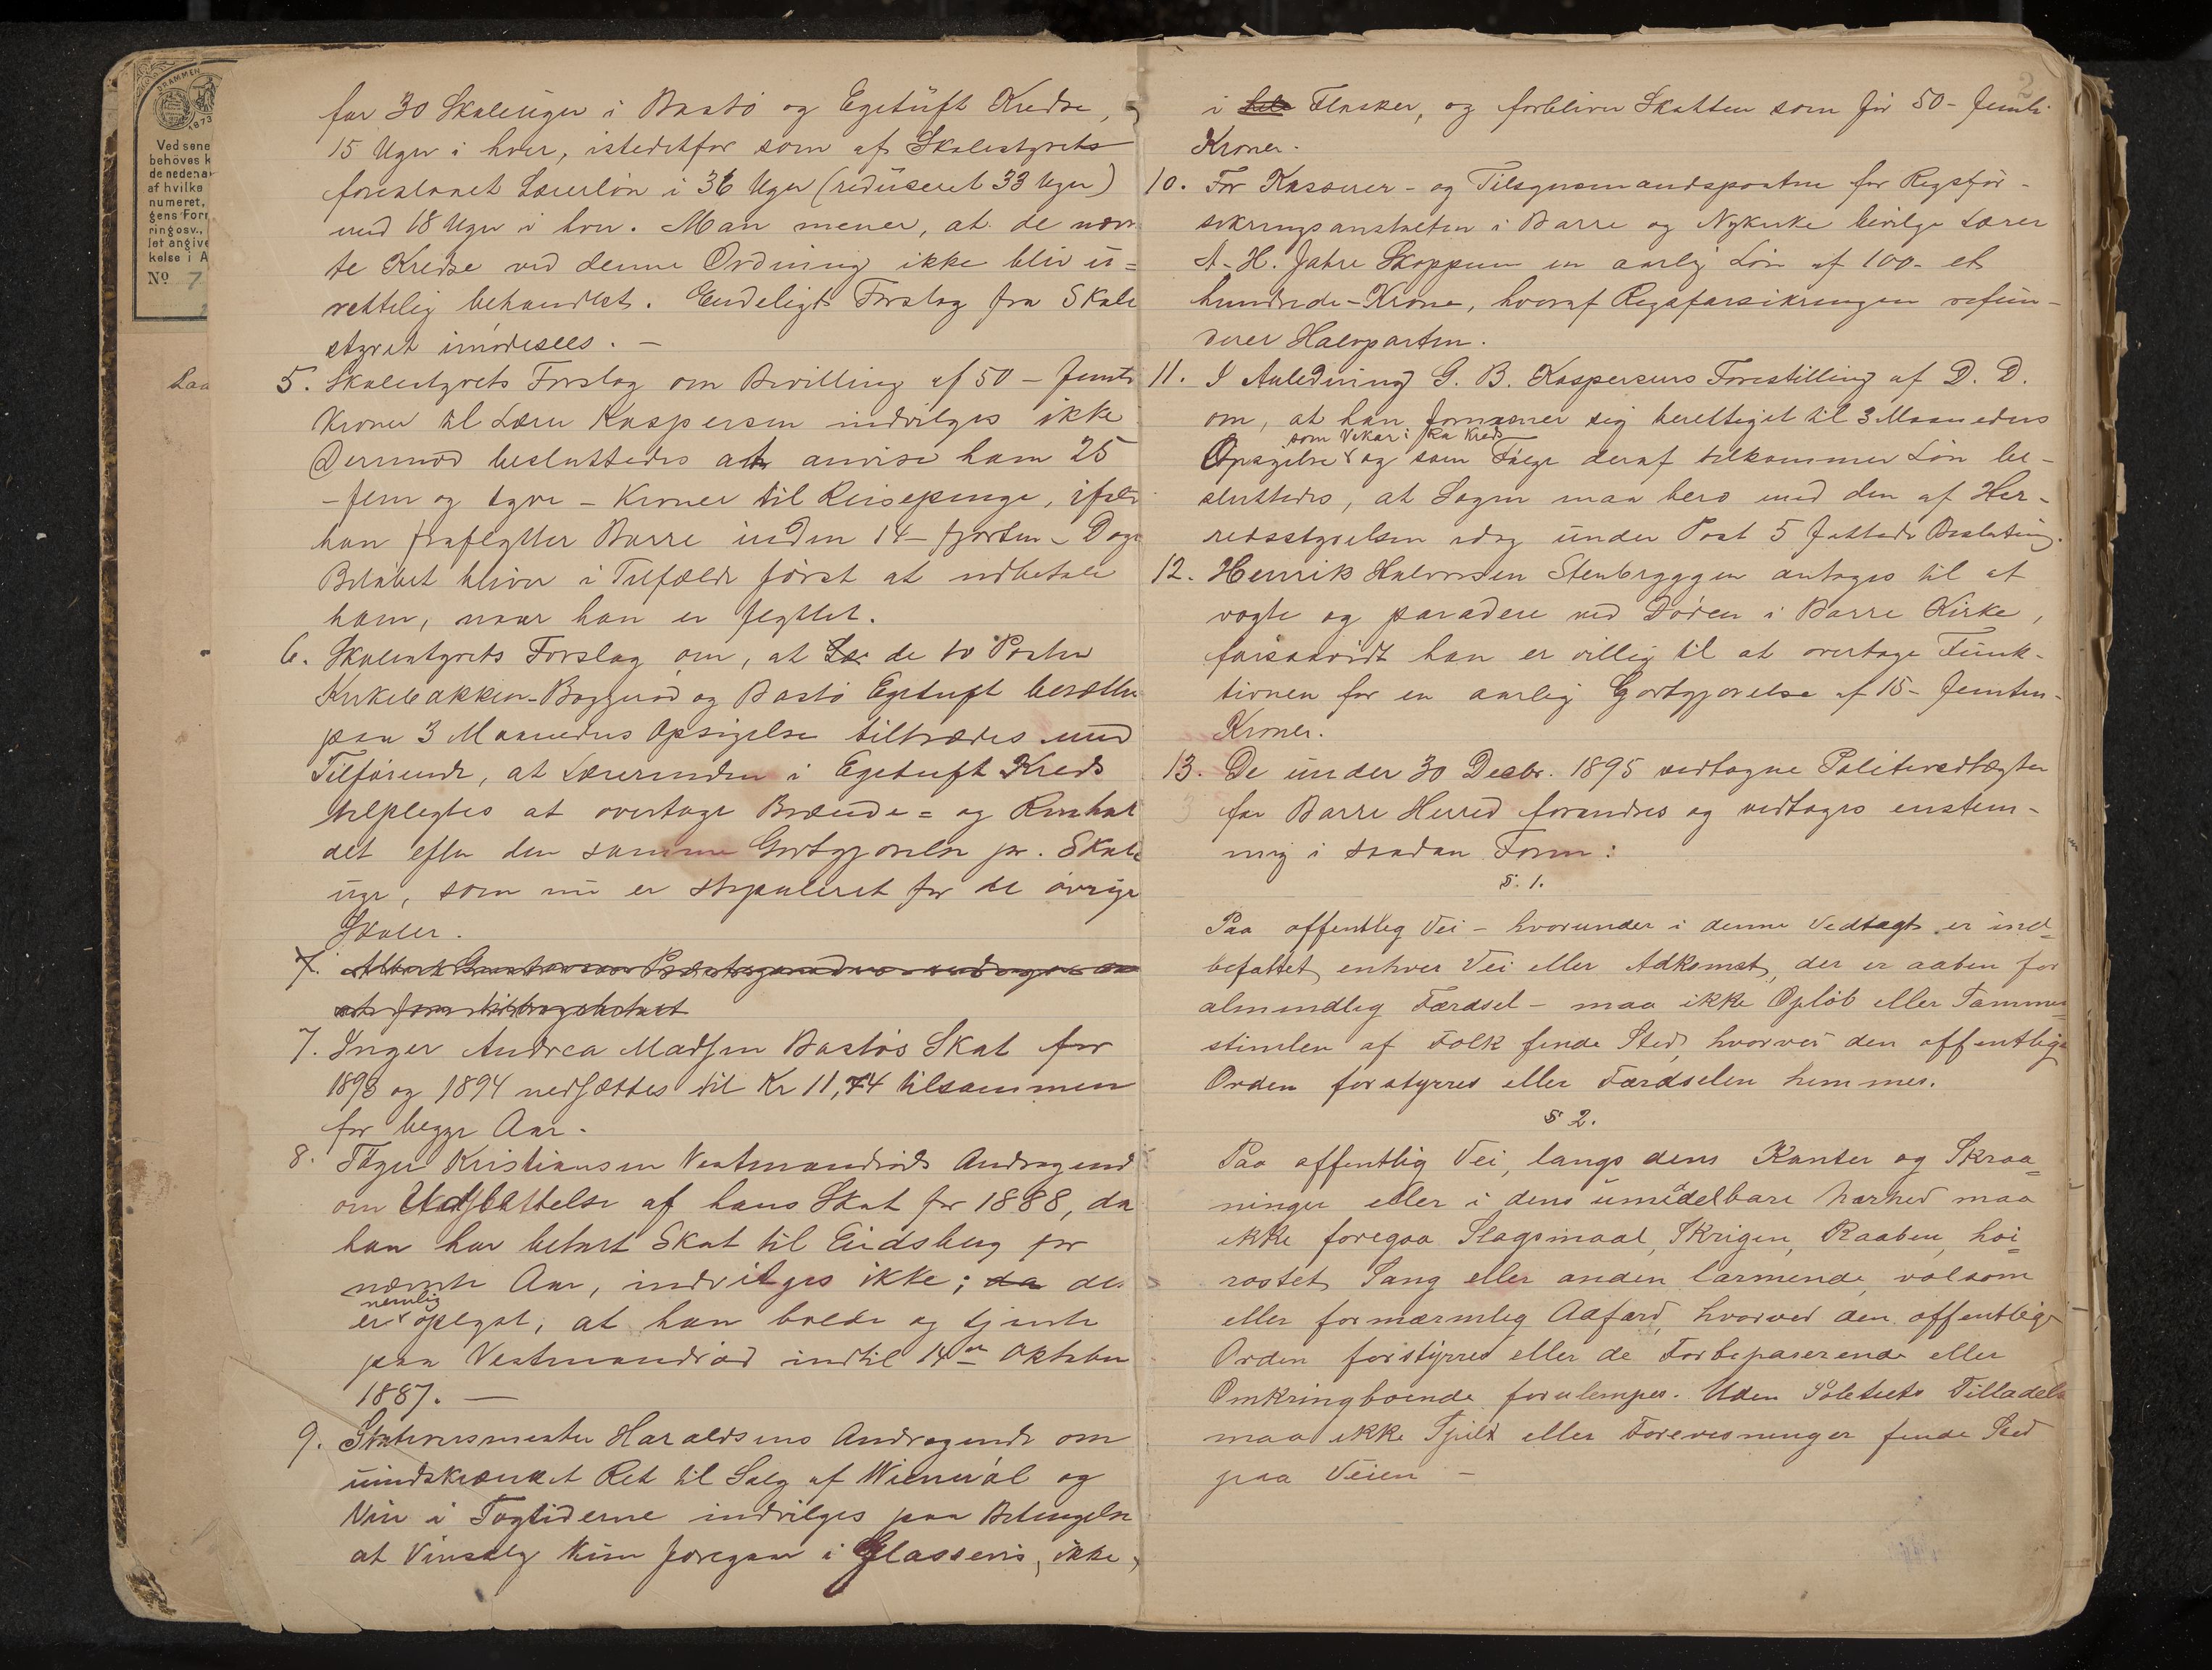 DRAMMEN
1873
Ved sene
behöves k
de nedena
af hvilke
numeret,
gens Forr
ring osv.,
let angive
kelse i A
No 7
Laa
for 30 Skoleuger i Bastö og Egetuft Kredse,
15 Uger i hver, istedetfor som af Skolestyrets
foreslaaet Lærerlön i 36 Uger (reduseret 33 Uger)
med 18 Uger i hver. Man mener, at de nævn
te Kredse ved denne Ordning ikke bliv u=
rettelig behandlet. Endeligt Forslag fra Skole
styret imödesees. —
5. Skolestyrets Forslag om Bevilling af 50 – femti
Kroner til Lærer Kaspersen indvilges ikke
Derimod besluttedes at anvise ham 25
– fem og tyve – Kroner til Reisepenge, ifald
han fraflytter Borre inden 14 – fjorten – Dage
Belöbet bliver i Tilfælde först at udbetale
ham, naar han er flyttet.
6. Skolestyrets Forslag om, at de to Poster
Kirkebakken-Boggeröd og Bastö Egetuft besættes
paa 3 Maaneders Opsigelse tiltrædes med
Tilföiende, at Lærerinden i Egetuft Kreds
tilpligtes at overtage Brænde= og Renhol
det efter den samme Godtgjörelse pr. Skole
uge, som nu er stipuleret for de övrige
Skoler.
7.
7. Inger Andrea Madsen Bastös Skat for
1893 og 1894 nedsættes til Kr 11,74 tilsammen
for begge Aar.
8. Kristiansen Vestmandröds Andragend
om af hans Skat for 1888, da
han har betalt Skat til Eidsberg for
nævnte Aar, indvilges ikke; da de
nemlig
er oplyst, at han boede og tjente
paa Vestmandröd indtil 14de Oktober
1887. —
9. Stationsmester Haraldsens Andragende om
uindskrænket Ret til Salg af Wieneröl og
Vin i Togtiderne indvilges paa Betingelse
at Vinsalg kun foregaar i Glassevis, ikke,
2
i Flasker, og forbliver Skatten som för 50 – femti
Kroner.
10. For Kasserer- og Tilsynsmandsposten for Rigsfor-
sikringsanstalten i Borre og Nykirke bevilges Lærer
A. H. Jahre Skoppum en aarlig Lön af 100 – et
hundrede – Krone, hvoraf Rigsforsikringen refun-
derer Halvparten.
11. I Anledning G. B. Kaspersens Forestilling af D. D.
om, at han formener sig berettiget til 3 Maaneders
som Vikar i Kreds
Opsigelse og som Fölge deraf tilkommer Lön be-
sluttedes, at Sagen maa bero med den af Her-
redsstyrelsen idag under Post 5 fattede Beslutning.
12. Henrik Halvorsen Stenbryggen antages til at
vogte og paradere ved Dören i Borre Kirke,
forsaavidt han er villig til at overtage Funk-
tionen for en aarlig Godtgjörelse af 15 – femten –
Kroner.
13. De under 30 Decbr. 1895 vedtagne Politivedtægter
for Borre Herred forandres og vedtages enstem-
mig i saadan Form:
§. 1.
Paa offentlig Vei – hvorunder i denne Vedtægt er ind=
befattet enhver Vei eller Adkomst, der er aaben for
almindelig Færdsel – maa ikke Oplöb eller Sammen=
stimlen af Folk finde Sted, hvorved den offentlige
Orden forstyrres eller Færdselen hemmes.
§ 2.
Paa offentlig Vei, langs dens Kanter og Skraa=
ninger eller i dens umiddelbare Nærhed maa
ikke foregaa Slagsmaal, Skrigen, Raaben, höi=
röstet Sang eller anden larmende, volsom
eller fornærmelig Adfærd, hvorved den offentlige
Orden forstyrres eller de Forbipaserende eller
Omkringboende forulempes. Uden Politiets Tilladelse
maa ikke Spild eller Forevisninger finde Sted
paa Veien –